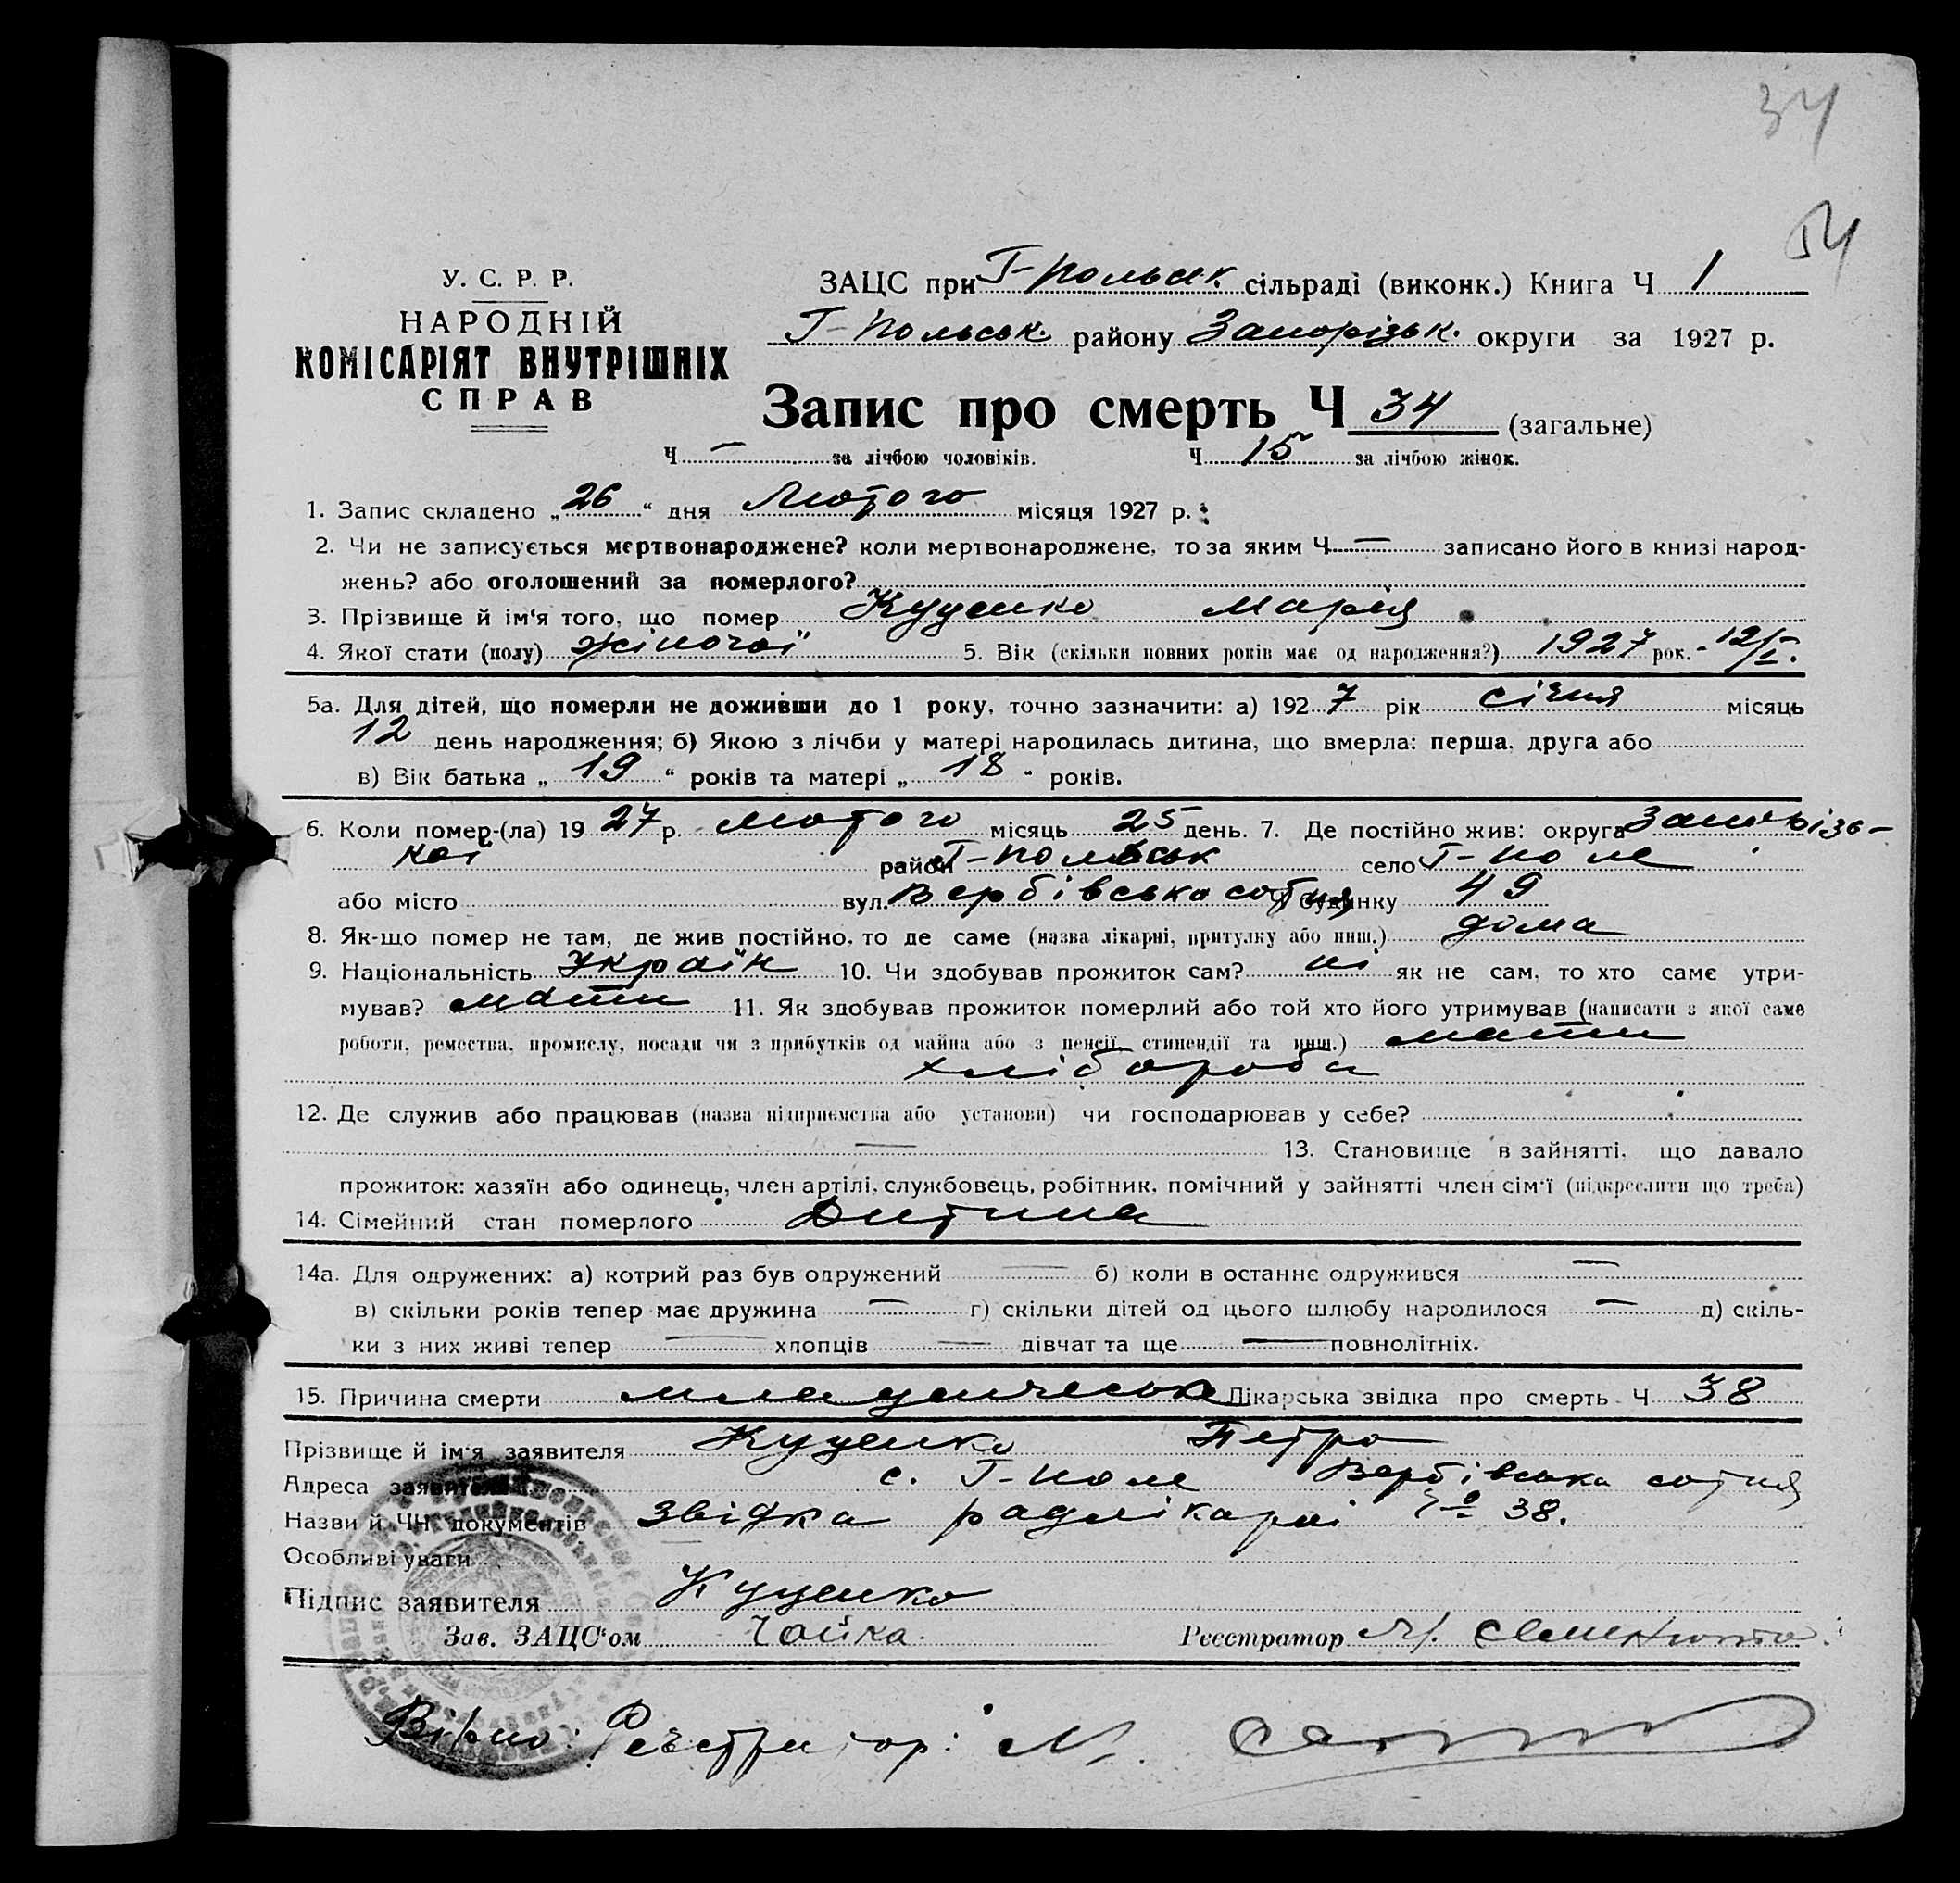 34
54
У. С. Р. Р.
НАРОДНІЙ
КОМІСАРІЯТ ВНУТРІШНІХ
СПРАВ
ЗАЦС при Г-Польськ. сільраді (виконк.) Книга Ч 1
Г-Польськ. району Запорізьк. округи за 1927 р.
Запис про смерть Ч 34 (загальне)
Ч — за лічбою чоловіків. Ч 15 за лічбою жінок.
1. Запис складено „26“ дня Лютого місяця 1927 р.
2. Чи не записується мертвонароджене? коли мертвонароджене, то за яким Ч — записано його в книзі народ-
жень? або оголошений за померлого?
3. Прізвище й ім‘я того, що помер Куценко Марія
4. Якої стати (полу) жіночої 5. Вік (скільки повних років має од народження?) 1927 рок. - 12/I.
5а. Для дітей, що померли не доживши до 1 року, точно зазначити: а) 1927 рік січня місяць
12 день народження; б) Якою з лічби у матері народилась дитина, що вмерла: перша, друга або
в) Вік батька „19“ років та матері „18“ років.
6. Коли помер-(ла) 1927 р. лютого місяць 25 день. 7. Де постійно жив: округа Запорізь-
кої район Г-Польськ село Г-Поле
або місто вул. Вербівська сотня будинку 49
8. Як-що помер не там, де жив постійно, то де саме (назва лікарні, притулку або инш.) дома
9. Національність Україн 10. Чи здобував прожиток сам? ні як не сам, то хто саме утри-
мував? мати 11. Як здобував прожиток померлий або той хто його утримував (написати з якої саме
роботи, ремества, промислу, посади чи з прибутків од майна або з пенсії, стипендії та инш.) мати
хлібороба
12. Де служив або працював (назва підприємства або установи) чи господарював у себе?
— 13. Становище в зайнятті, що давало
прожиток: хазяїн або одинець, член артілі, службовець, робітник, помічний у зайнятті член сім‘ї (підкреслити що треба)
14. Сімейний стан померлого Дитина
14а. Для одружених: а) котрий раз був одружений — б) коли в останнє одружився —
в) скільки років тепер має дружина — г) скільки дітей од цього шлюбу народилося — д) скіль-
ки з них живі тепер — хлопців — дівчат та ще — повнолітніх.
15. Причина смерти Лікарська звідка про смерть Ч 38
Прізвище й ім‘я заявителя Куценко Петро
Адреса заявителя с. Г-Поле Вербівська сотня
Назви й ЧН документів Звідка радлікарні № 38.
Особливі уваги
Підпис заявителя Куценко
Зав. ЗАЦС‘ом Чайка. Реєстратор
Вірно: Реєстратор: